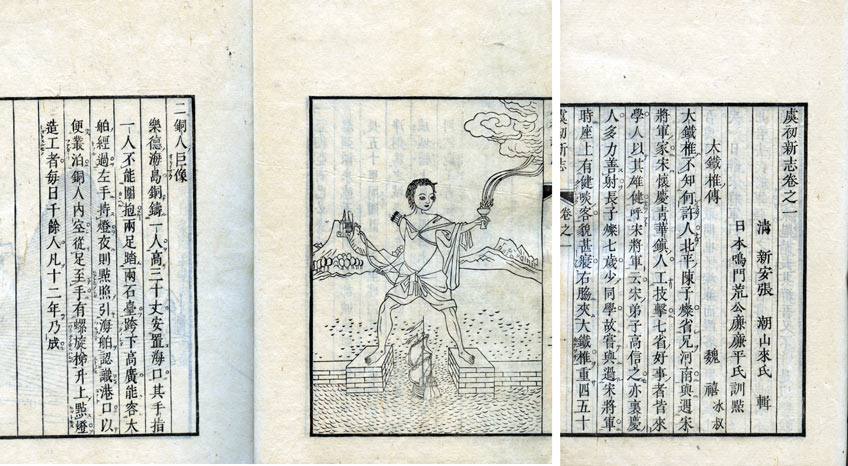 虞初新志卷之一
清 新安張 潮山來氏 輯
日本鳴門荒公廉廉平氏訓點
大鐵椎傳 魏 禧 冰叔
大鐵椎不知何許人北平陳子燦省兄河南與遇宋
將軍家宋懷慶青華鎮人工技擊七省好事者皆來
學人以其雄健呼宋將軍云宋弟子高信之亦裏慶
人多力善射長子燦七歲少同學故嘗與過宋將軍
時座上有健啖客貌甚寢右脇夾大鐵椎重四五十
虞初新志 卷之一
二銅人巨像
樂德海島銅鑄一人高三十丈安置海口其手指
一人不能圍抱兩足踏兩石臺跨下高廣能容大
舶經過左手持燈夜則點照引海舶認識港口以
便叢泊銅人內空從足至手有螺旋梯升上點燈
造工者每日千餘人凡十二年乃成